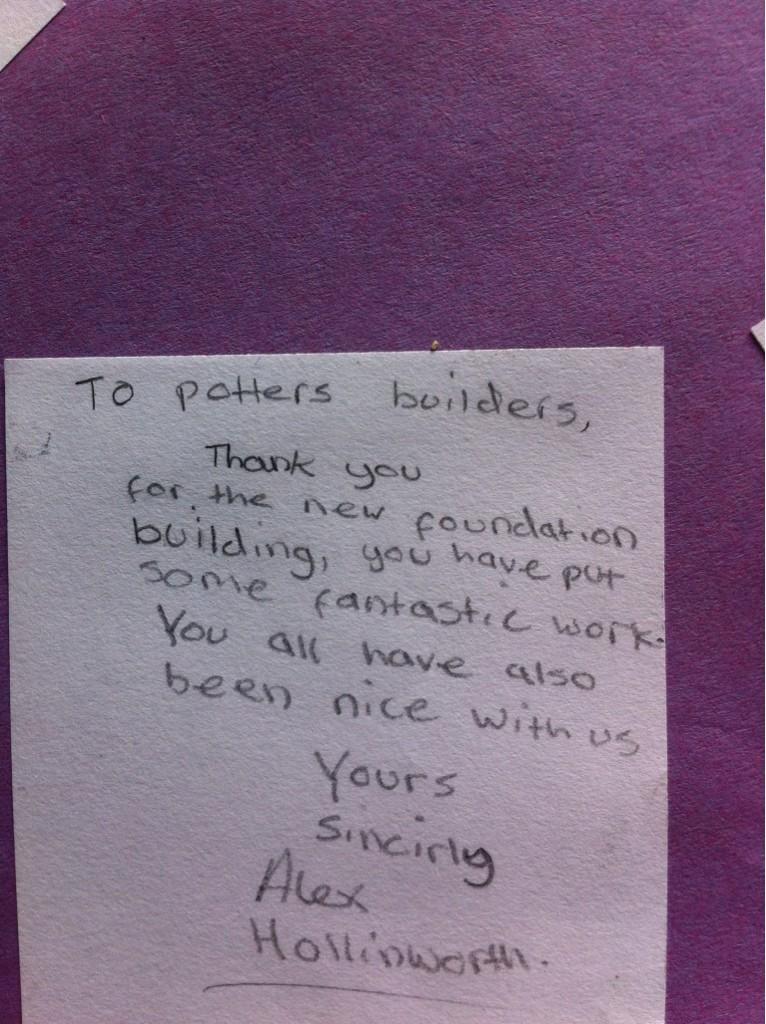 To potters builders,
Thank you
for the new foundation
building, you have put
some fantastic work.
You all have also
been nice with us
Yours
sincirly
Alex
Hollinworth.